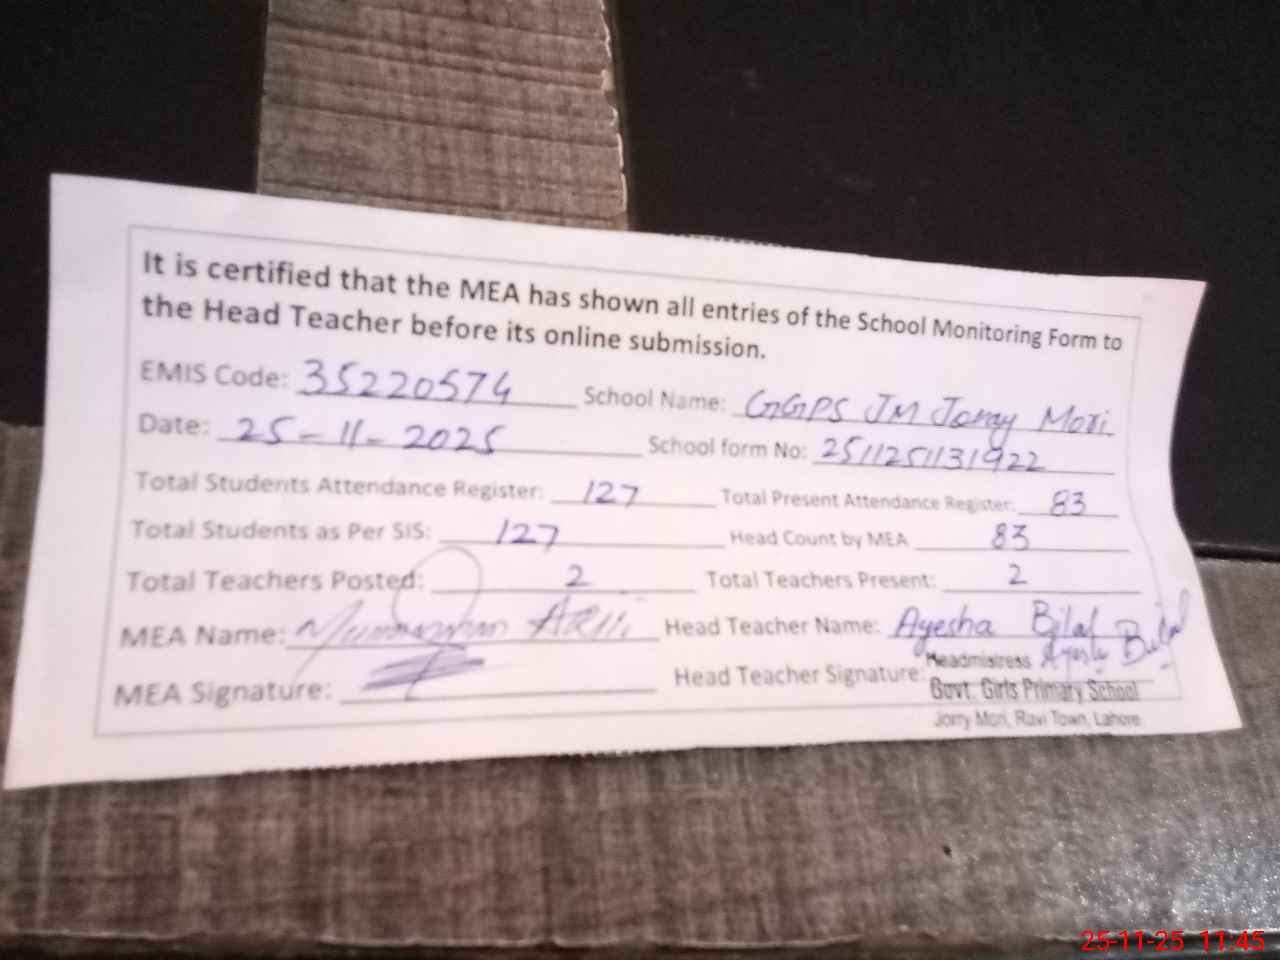 It is certified that the MEA has shown all entries of the School Monitoring Form to
the Head Teacher before its online submission.
EMIS Code: 35220574 School Name: GGPS JM Joray Mori
Date: 25-11-2025 School form No: 2511251131922
Total Students Attendance Register: 127 Total Present Attendance Register: 83
Total Students as Per SIS: 127 Head Count by MEA 83
Total Teachers Posted: 2 Total Teachers Present: 2
MEA Name: Head Teacher Name: Ayesha Bilal
MEA Signature: Head Teacher Signature: Ayesha Bilal
Headmistress
Govt. Girls Primary School
Jorry Mori, Ravi Town, Lahore
25-11-25 11:45